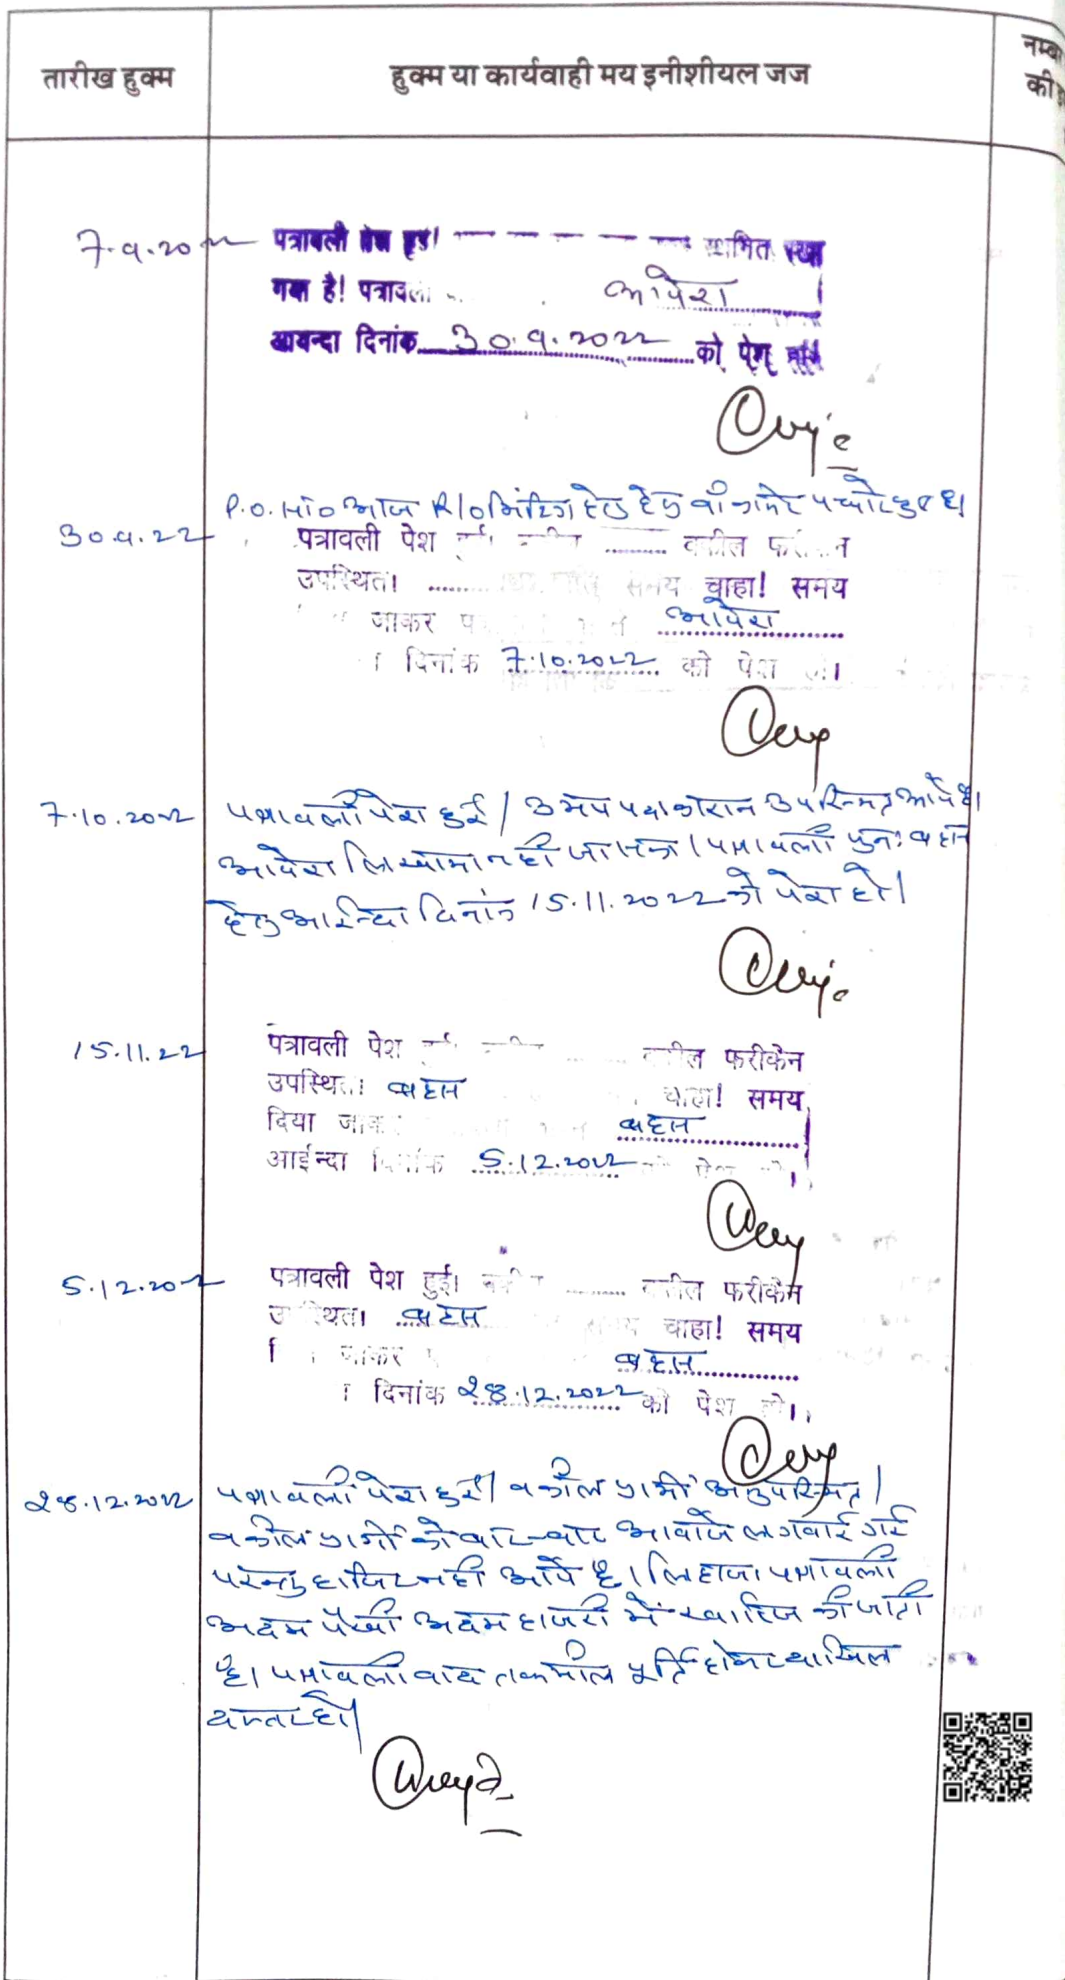 तारीख हुक्म
हुक्म या कार्यवाही मय इनीशीयल जज
नम्ब
की
7.9.2022
पत्रावली पेश हुई! स्थगित रखा
गया है! पत्रावली आदेश
आयन्दा दिनांक 30.9.2022 को पेश
P.O. सा० आज R/O मिटिंग हेतु
30.9.22
पत्रावली पेश वकील
उपस्थित। समय चाहा! समय
जाकर आदेश
दिनांक 7.10.2022 को पेश हो।
7.10.2022
पत्रावली पेश हुई। उभय पक्षकारान उपस्थित आये है।
आदेश लिखाया नही जा सका। पत्रावली पुनः बहस
हेतु आईन्दा दिनांक 15.11.2022 को पेश हो।
15.11.22
पत्रावली पेश वकील फरीकेन
उपस्थित। बहस चाहा! समय
दिया बहस
आईन्दा दिनांक 5.12.2022 पेश
5.12.2022
पत्रावली पेश हुई। वकील फरीकेन
उपस्थित। बहस समय चाहा! समय
जाकर बहस
दिनांक 28.12.2022 को पेश हो।
28.12.2022
पत्रावली पेश हुई। वकील प्रार्थी अनुपस्थित।
वकील प्रार्थी को बार-बार आवाजे लगवाई गई
परन्तु हाजिर नही आये है। लिहाजा पत्रावली
अदम पैरवी अदम हाजरी में खारिज की जाती
है। पत्रावली बाद तकमील पूर्ति होकर दाखिल
दफ्तर हो।